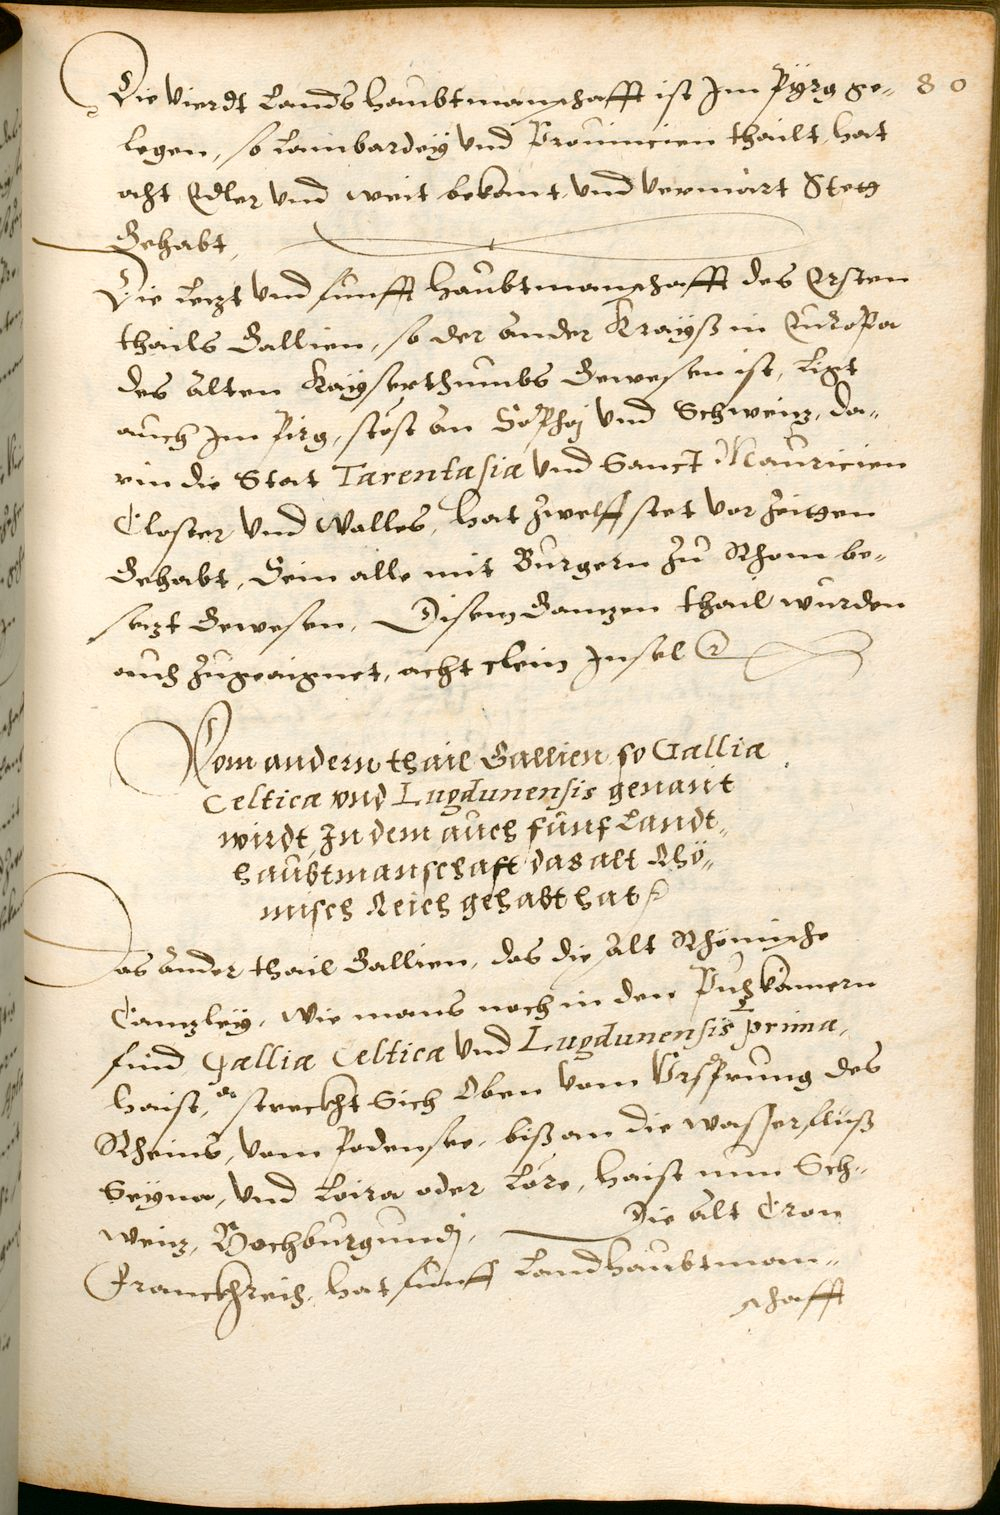 80
Die Vierdt Landshaubtmanschafft ist Im Pÿrg ge-
legen, so Lombardeÿ Vnd Prouincien thailt, hat
acht Edler Vnd weit bekant Vnd Vermärt Stett
Gehabt,
Die Letzt Vnd funfft Haubtmanschafft des Ersten
thails Gallien, so der ander Kraÿß in Europa
des alten Kaÿserthumbs Gewesen ist, Ligt
auch Im Pirg, stost an Sophoj Vnd Schweitz, da-
rin die Stat Tarentasia Vnd Sanct Mauricien
Closter Vnd Walles, hat Zwelff stet vor Zeitten
Gehabt, Sein alle mit Burgern Zu Rhom be-
setzt Gewesen, Disem Gantzen thail wurden
auch Zugeaignet, acht clein Insel
Vom andern thail Gallien so Gallia
Celtica vnd Lugdunensis genant
wirdt, In dem auch funf Landt-
haubtmanschaft das alt Rhö-
misch Reich gehabt hat
Das ander thail Gallien, das die Alt Rhömische
Cantzleÿ, Wie mans noch in den Puchkamern
find Gallia Celtica Vnd Lugdunensis prima,
haist, streckht Sich Oben Vom Vrsprung des
Rheins, Vom Podensee, biß an die wasserfluß
Seÿna, Vnd Loira oder Lore, haist nun Sch-
weitz, Hochburgundj, Die alt Cron
Franckhreich, hat funff Landhaubtman-
schafft